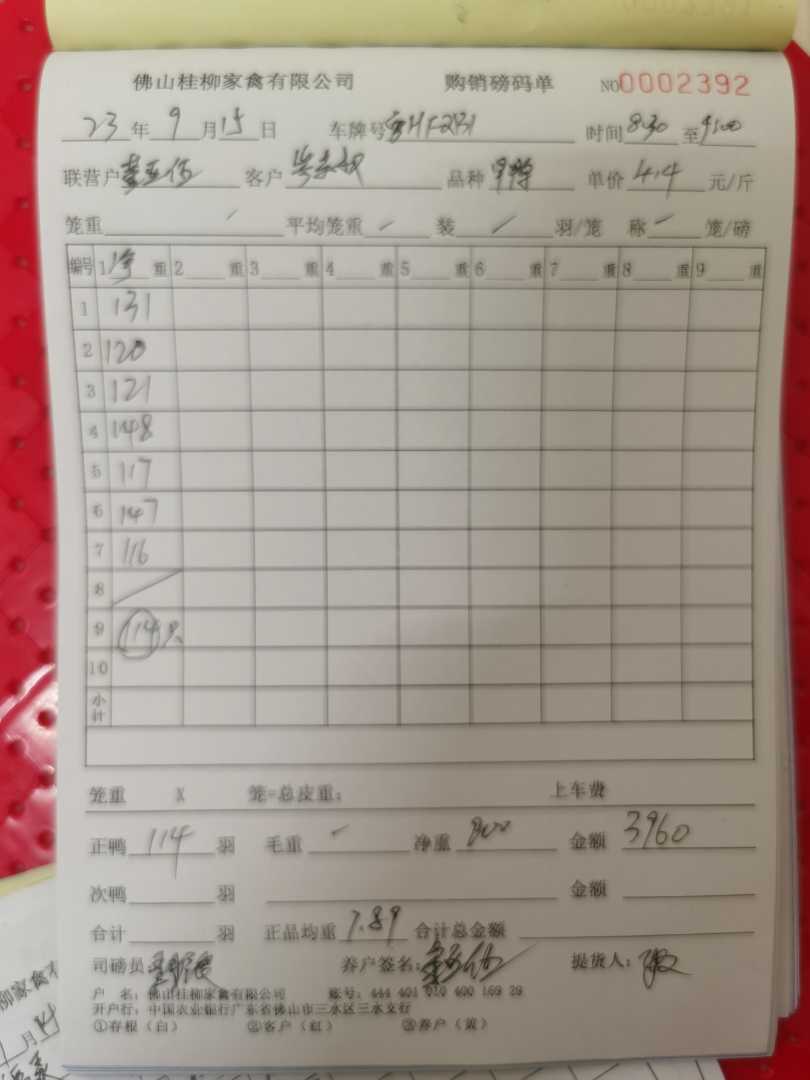 佛山桂柳家禽有限公司 购销磅码单 NO0002392
23年9月15日 车牌号 时间8:30至9:00
联营户 客户 品种 单价4.4元/斤
笼重 平均笼重 装 羽/笼 称 笼/磅
编号 1净重 2 重 3 重 4 重 5 重 6 重 7 重 8 重 9 重
1 131
2 120
3 121
4 148
5 117
6 147
7 116
8
9 114只
10
小计
笼重 X 笼=总皮重: 上车费
正鸭114羽 毛重 净重900 金额3960
次鸭 羽 金额
合计 羽 正品均重7.89 合计总金额
司磅员: 养户签名: 提货人:
户 名: 佛山桂柳家禽有限公司 账号: 444 401 010 400 169 29
开户行: 中国农业银行广东省佛山市三水区三水支行
①存根(白) ②客户(红) ③养户(黄)
家禽有
月